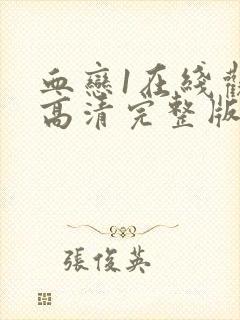 血戀1在綫觀
高清完整版
張俊英